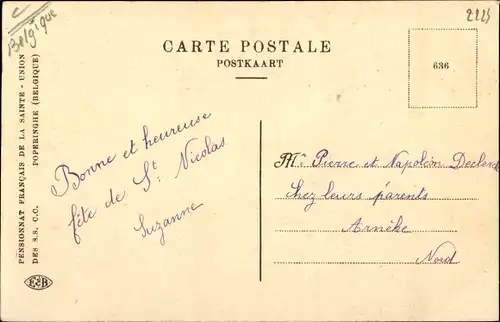 C
Belgique
2225
CARTE POSTALE
POSTKAART
636
PENSIONNAT FRANÇAIS DE LA SAINTE - UNION
DES S.S. C.C. POPERINGHE (BELGIQUE)
Bonne et heureuse
fête de St. Nicolas
Suzanne
Mrs Pierre et Napoléon Declerck
chez leurs parents
Arnèke
Nord